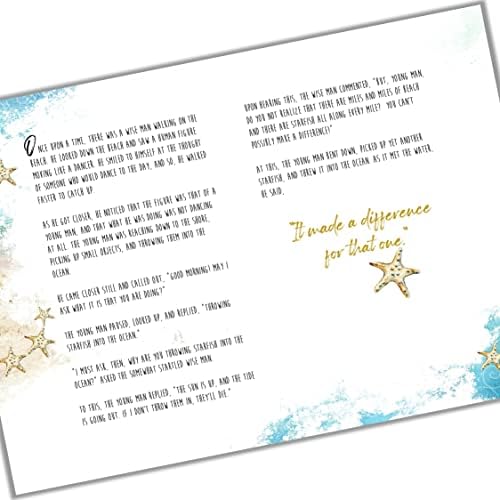 Once upon a time, there was a wise man walking on the
beach. He looked down the beach and saw a human figure
moving like a dancer. He smiled to himself at the thought
of someone who would dance to the day, and so, he walked
faster to catch up.
As he got closer, he noticed that the figure was that of a
young man, and that what he was doing was not dancing
at all. The young man was reaching down to the shore,
picking up small objects, and throwing them into the
ocean.
He came closer still and called out, "Good morning! May I
ask what it is that you are doing?"
The young man paused, looked up, and replied, "Throwing
starfish into the ocean."
"I must ask, then, why are you throwing starfish into the
ocean?" asked the somewhat startled wise man.
To this, the young man replied, "The sun is up, and the tide
is going out. If I don't throw them in, they'll die."
Upon hearing this, the wise man commented, "But, young man,
do you not realize that there are miles and miles of beach
and there are starfish all along every mile? You can't
possibly make a difference!"
At this, the young man bent down, picked up yet another
starfish, and threw it into the ocean. As it met the water,
he said,
"It made a difference
for that one."